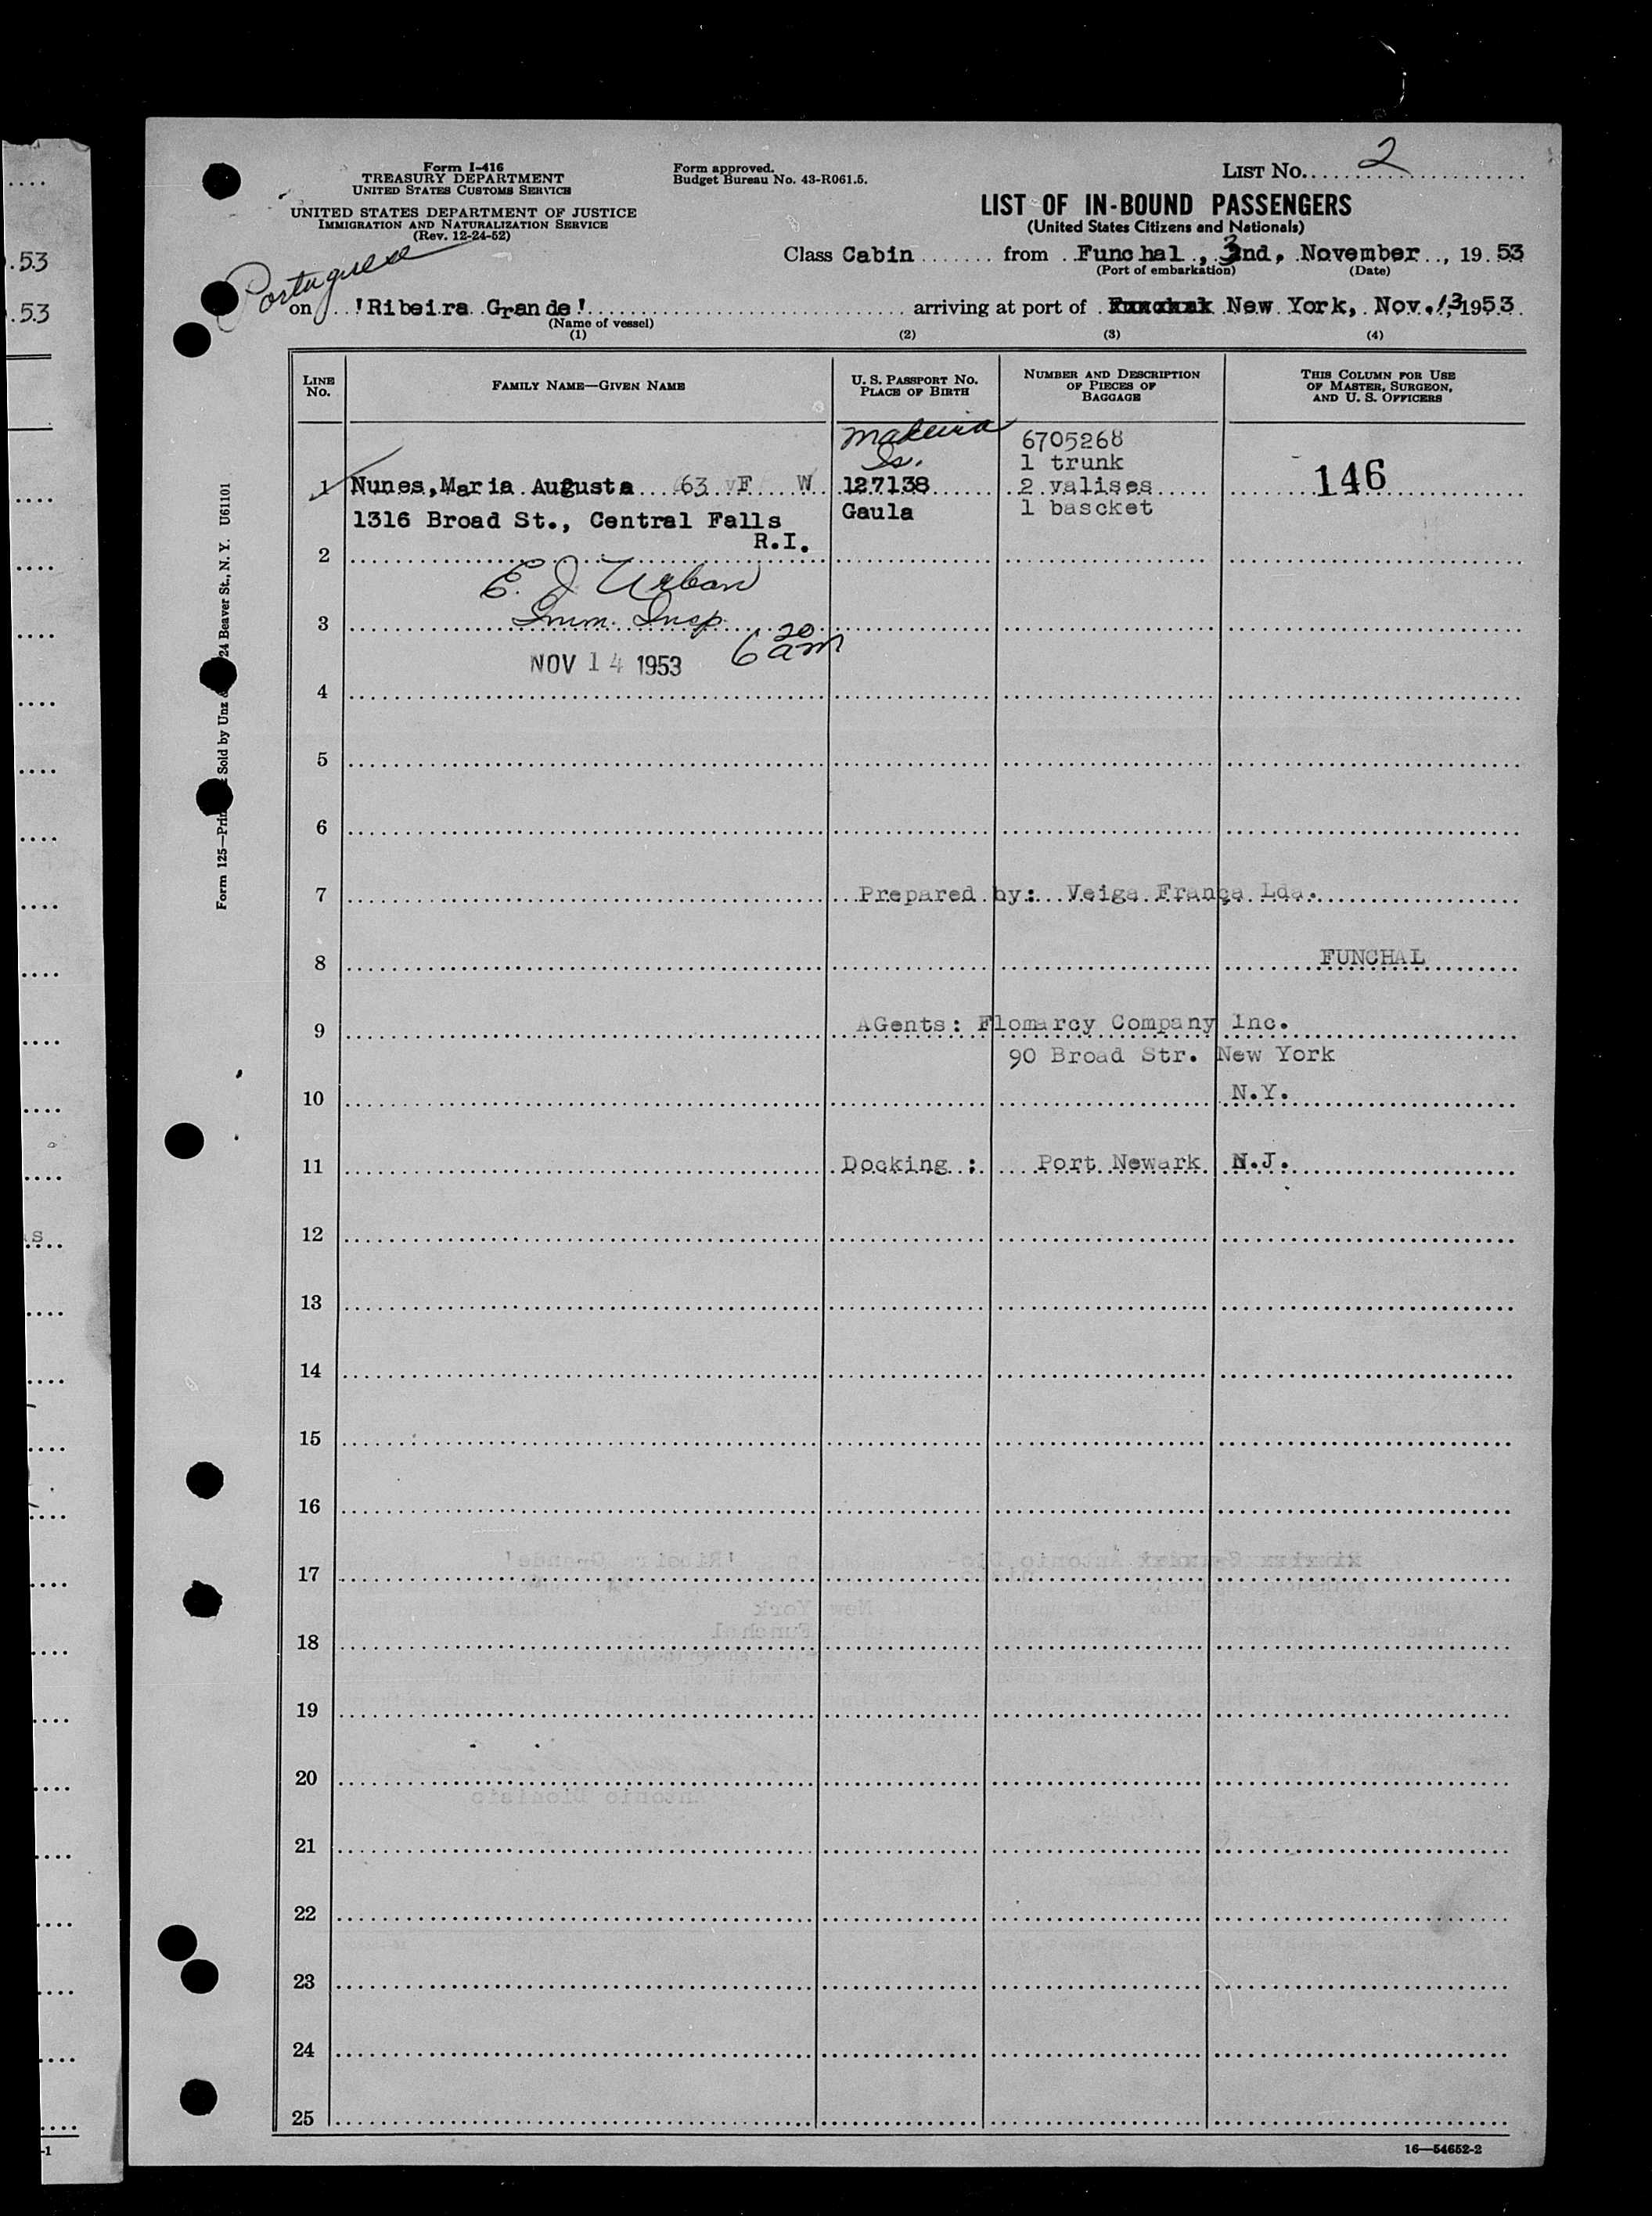 .53
.53
s
-1
Form I-416
TREASURY DEPARTMENT
UNITED STATES CUSTOMS SERVICE
UNITED STATES DEPARTMENT OF JUSTICE
IMMIGRATION AND NATURALIZATION SERVICE
(Rev. 12-24-52)
Form approved.
Budget Bureau No. 43-R061.5.
LIST NO. 2
LIST OF IN-BOUND PASSENGERS
(United States Citizens and Nationals)
Class Cabin from Funchal, 3nd, November, 1953
(Port of embarkation) (Date)
Portuguese
on 'Ribeira Grande' arriving at port of New York, Nov. 13, 1953
(Name of vessel)
(1) (2) (3) (4)
LINE No.
FAMILY NAME—GIVEN NAME
U. S. PASSPORT NO.
PLACE OF BIRTH
NUMBER AND DESCRIPTION
OF PIECES OF
BAGGAGE
THIS COLUMN FOR USE
OF MASTER, SURGEON,
AND U. S. OFFICERS
Madeira 6705268
Is. 1 trunk
1 Nunes,Maria Augusta 63 F W 127138 2 valises 146
1316 Broad St., Central Falls Gaula 1 bascket
R.I.
2
E. J. Urban
3 Imm. Insp.
NOV 14 1953 6 20 am
4
5
6
7 Prepared by: Veiga França Lda.
8 FUNCHAL
9 AGents: Flomarcy Company Inc.
90 Broad Str. New York
10 N.Y.
11 Docking : Port Newark N.J.
12
13
14
15
16
17
18
19
20
21
22
23
24
25
Form 125—Prin Sold by Unz & 24 Beaver St., N. Y. U61101
'Ribeira Grande'
New York
Funchal
Antonio Dionisio
16—54652-2